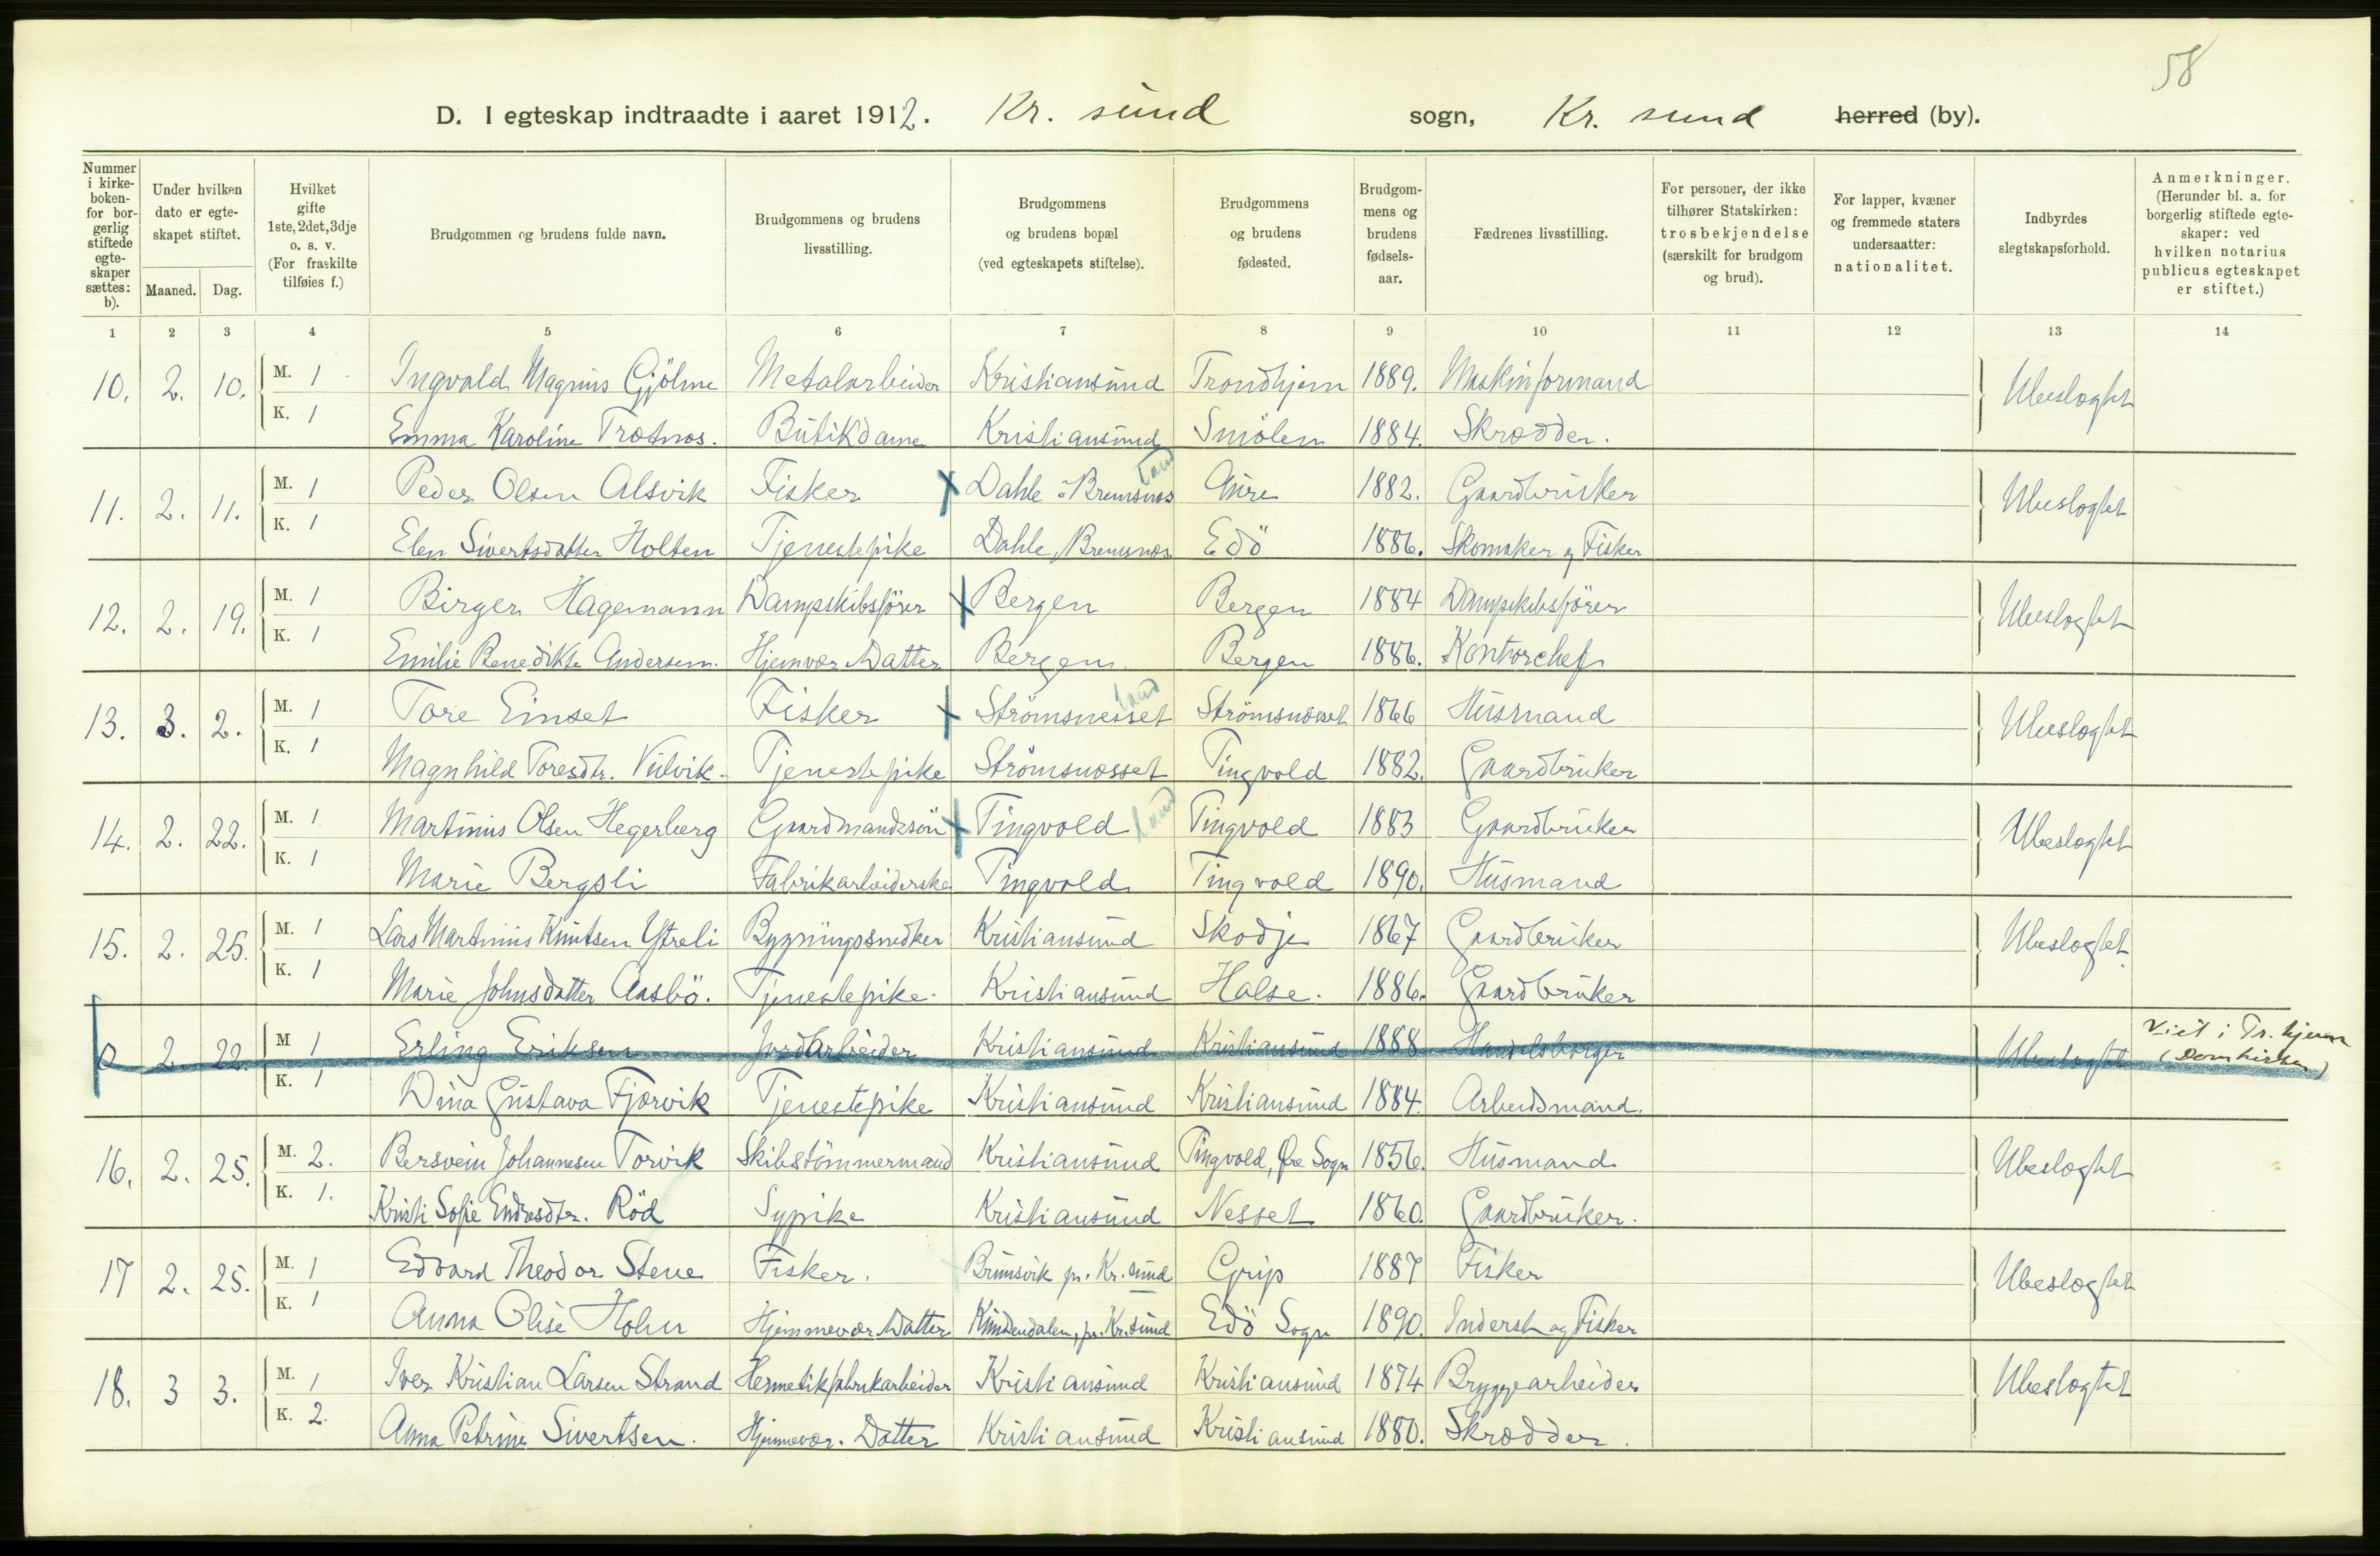 58
D. I egteskap indtraadte i aaret 1912. Kr. sund sogn, Kr. sund herred (by).
Nummer i kirke-boken- for bor-gerlig stiftede egte-skaper sættes: b).
Under hvilken dato er egte-skapet stiftet.
Maaned. Dag.
Hvilket gifte 1ste, 2det, 3dje o. s. v. (For fraskilte tilføies f.)
Brudgommen og brudens fulde navn.
Brudgommens og brudens livsstilling.
Brudgommens og brudens bopæl (ved egteskapets stiftelse).
Brudgommens og brudens fødested.
Brudgom-mens og brudens fødsels-aar.
Fædrenes livsstilling.
For personer, der ikke tilhører Statskirken: trosbekjendelse (særskilt for brudgom og brud).
For lapper, kvæner og fremmede staters undersaatter: nationalitet.
Indbyrdes slegtskapsforhold.
Anmerkninger. (Herunder bl. a. for borgerlig stiftede egte-skaper: ved hvilken notarius publicus egteskapet er stiftet.)
1 2 3 4 5 6 7 8 9 10 11 12 13 14
10. 2. 10. M. 1 Ingvald Magnus Gjölme Metalarbeider Kristiansund Trondhjem 1889. Maskinformand Ubeslægtet
K. 1 Emma Karoline Trotnæs. Butikdame Kristiansund Smölen 1884. Skrædder.
11. 2. 11. M. 1 Peder Olsen Alsvik Fisker x Dahle i Bremsnæs Land Aure 1882. Gaardbruker Ubeslægtet
K. 1 Elen Sivertsdatter Holten Tjenestepike Dahle, Bremsnæs Edö 1886. Skomaker og Fisker
12. 2. 19. M. 1 Birger Hagemann Dampskibsförer x Bergen Bergen 1884 Dampskibsförer Ubeslægtet
K. 1 Emilie Benedikte Andersen. Hjemvær. Datter Bergen Bergen 1886. Kontorchef
13. 3. 2. M. 1 Tore Einset Fisker x Strömsnesset Land Strömsnæsset 1866 Husmand Ubeslægtet
K. 1 Magnhild Toresdtr. Vulvik. Tjenestepike Strömsnæsset Tingvold 1882. Gaardbruker
14. 2. 22. M. 1 Martinus Olsen Hegerberg Gaardmandssön x Tingvold Land Tingvold 1883 Gaardbruker Ubeslægtet
K. 1 Marie Bergsli Fabrikarbeiderske Tingvold Tingvold 1890. Husmand
15. 2. 25. M. 1 Lars Martinius Knutsen Ytreli Bygningssnedker Kristiansund Skodje 1867 Gaardbruker Ubeslægtet
K. 1 Marie Johnsdatter Aasbö. Tjenestepike. Kristiansund Halse. 1886. Gaardbruker
2 22. M 1 Erling Eriksen Jordarbeider Kristiansund Kristiansund 1888 Handelsborger Ubeslægtet Viet i Tr.hjem (Domkirken)
K. 1 Dina Gustava Fjørvik Tjenestepike Kristiansund Kristiansund 1884. Arbeidsmand.
16. 2. 25. M. 2. Bersvein Johannesen Torvik Skibstömmermand Kristiansund Tingvold, Øre Sogn 1856. Husmand Ubeslægtet
K. 1. Kristi Sofie Endresdtr. Röd Sypike Kristiansund Nesset 1860. Gaardbruker.
17 2. 25. M. 1 Edvard Theodor Stene Fisker. Brunsvik pr. Kr.sund Grip 1887 Fisker Ubeslægtet
K. 1 Anna Elise Holm Hjemmevær. Datter pr. Kr.sund Edö Sogn 1890. Inderst og Fisker
18. 3 3. M. 1 Iver Kristian Larsen Strand Hermetikfabrikarbeider Kristiansund Kristiansund 1874 Bryggearbeider Ubeslægtet
K. 2. Anna Petrine Sivertsen. Hjemmevær. Datter Kristiansund Kristiansund 1880. Skrædder.